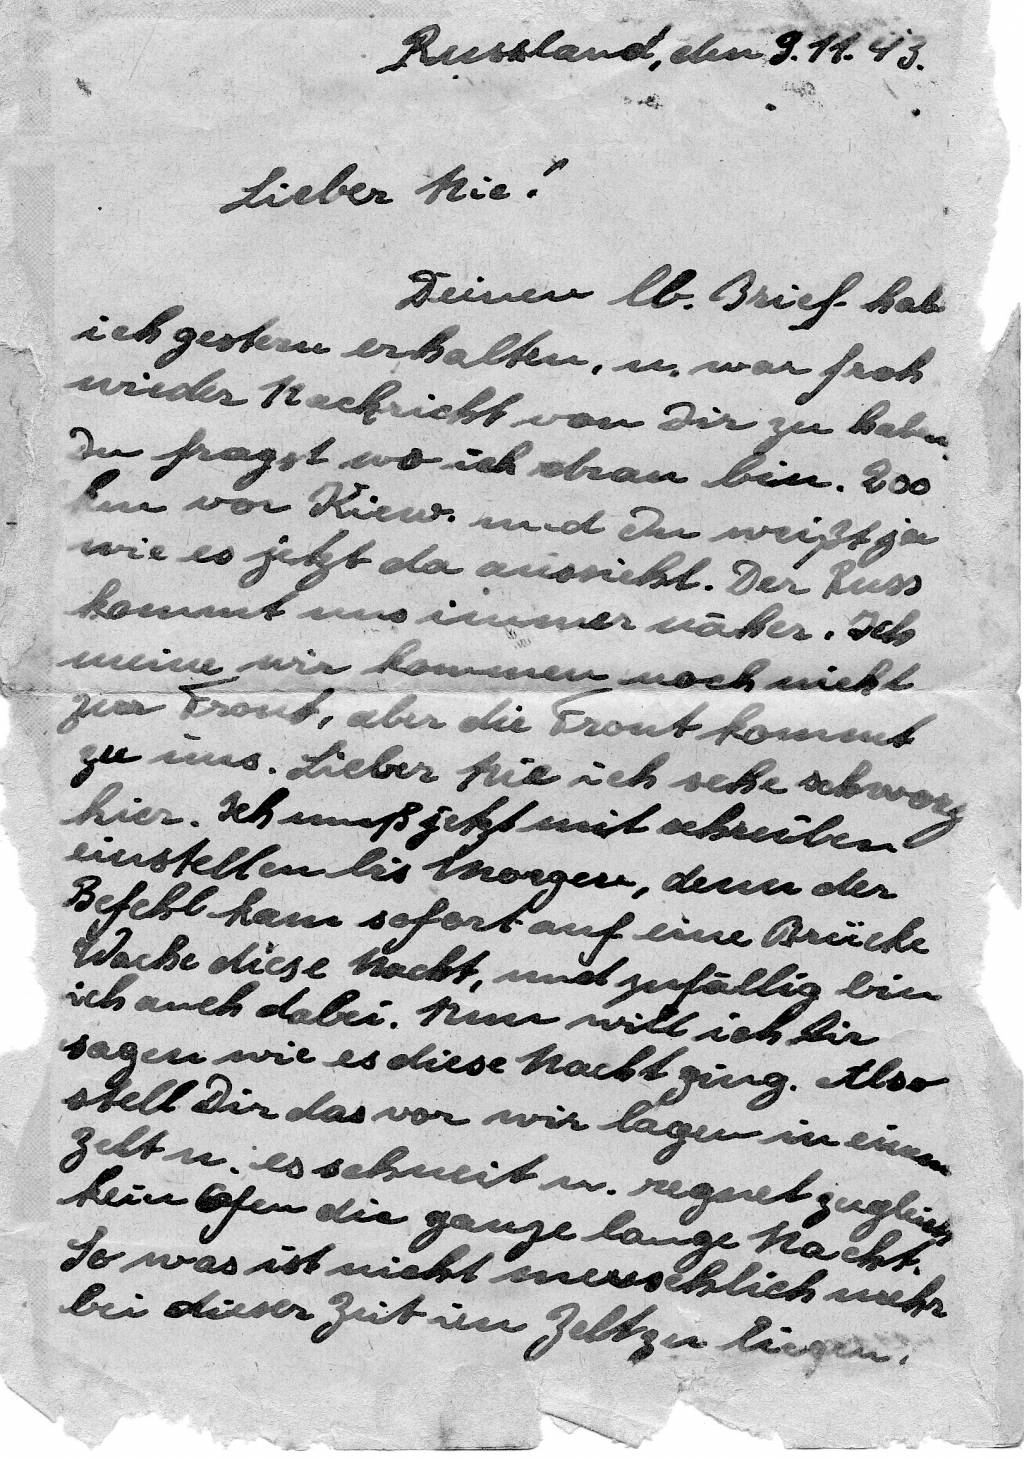 Russland, den 9.11.43.
Lieber Nie!
Deinen lb. Brief hab
ich gestern erhalten, u. war froh
wieder Nachricht von Dir zu haben
Du fragst wo ich dran bin. 200
km vor Kiew. und Du weißt ja
wie es jetzt da aussieht. Der Russ
kommt uns immer näher. Ich
meine wir kommen noch nicht
zur Front, aber die Front kommt
zu uns. Lieber Nie ich sehe schwarz
hier. Ich muß jetzt mit schreiben
einstellen bis Morgen, denn der
Befehl kam sofort auf eine Brücke
Wache diese Nacht, und zufällig bin
ich auch dabei. Nun will ich Dir
sagen wie es diese Nacht ging. Also
stell Dir das vor wir lagen in einem
Zelt u. es schneit u. regnet zugleich
kein Ofen die ganze lange Nacht.
So was ist nicht menschlich mehr
bei dieser Zeit im Zelt zu liegen.